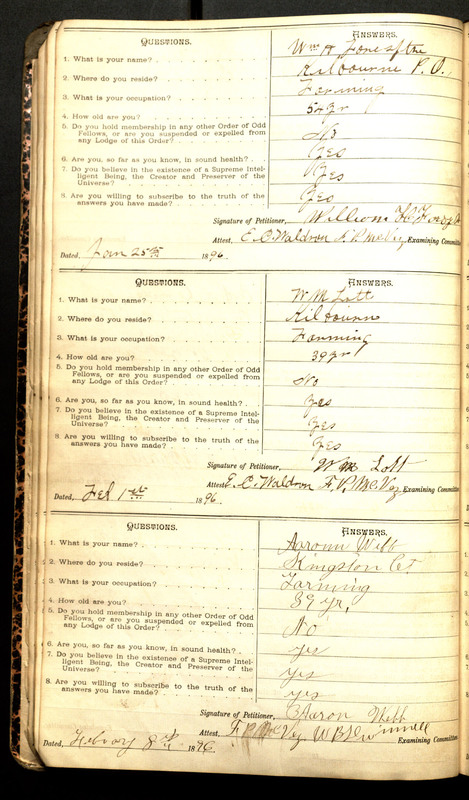 QUESTIONS. ANSWERS.
1. What is your name? Wm H
2. Where do you reside? Kilbourne P. O.
3. What is your occupation? Farming
4. How old are you? 52 yr
5. Do you hold membership in any other Order of Odd
Fellows, or are you suspended or expelled from
any Lodge of this Order? No
6. Are you, so far as you know, in sound health? Yes
7. Do you believe in the existence of a Supreme Intel-
ligent Being, the Creator and Preserver of the
Universe? Yes
8. Are you willing to subscribe to the truth of the
answers you have made? Yes
Signature of Petitioner, William H
Attest, E. C. Waldron F. P. McVey Examining Committee
Dated, Jan 25th 1896.
QUESTIONS. ANSWERS.
1. What is your name? W M Lott
2. Where do you reside? Kilbourn
3. What is your occupation? Farming
4. How old are you? 39 yr
5. Do you hold membership in any other Order of Odd
Fellows, or are you suspended or expelled from
any Lodge of this Order? No
6. Are you, so far as you know, in sound health? Yes
7. Do you believe in the existence of a Supreme Intel-
ligent Being, the Creator and Preserver of the
Universe? Yes
8. Are you willing to subscribe to the truth of the
answers you have made? Yes
Signature of Petitioner, W M Lott
Attest, E. C. Waldron F. P. McVey Examining Committee
Dated, Feb 1st 1896.
QUESTIONS. ANSWERS.
1. What is your name? Aaron Webb
2. Where do you reside? Kingston Ct.
3. What is your occupation? Farming
4. How old are you? 39 yr,
5. Do you hold membership in any other Order of Odd
Fellows, or are you suspended or expelled from
any Lodge of this Order? No
6. Are you, so far as you know, in sound health? yes
7. Do you believe in the existence of a Supreme Intel-
ligent Being, the Creator and Preserver of the
Universe? yes
8. Are you willing to subscribe to the truth of the
answers you have made? yes
Signature of Petitioner, Aaron Webb
Attest, F. P. McVey W B Examining Committee
Dated, 8th 1896